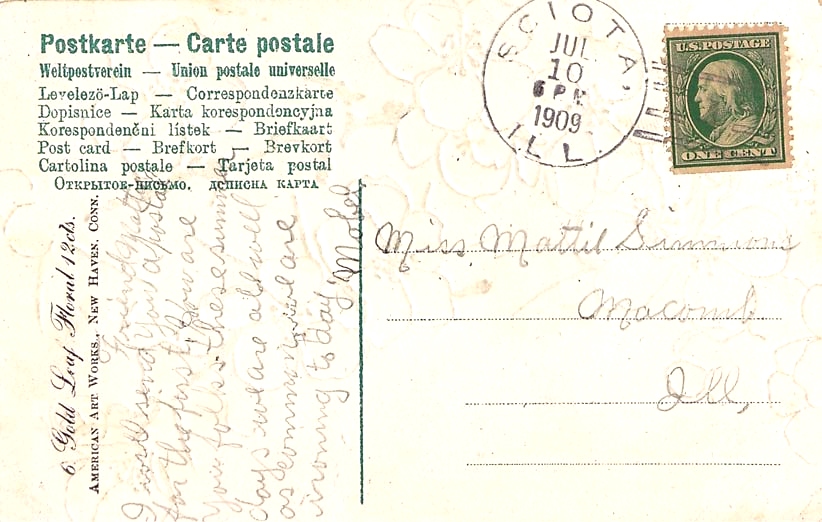 Postkarte — Carte postale
Weltpostverein — Union postale universelle
Levelezö-Lap — Correspondenzkarte
Dopisnice — Karta korespondencyjna
Korespondenčni lístek — Briefkaart
Post card — Brefkort — Brevkort
Cartolina postale — Tarjeta postal
Открытое-письмо. дописна карта
SCIOTA,
JUL
10
6 PM
1909
ILL
U.S. POSTAGE
ONE CENT
Miss Mattie Simmons
Macomb
Ill,
6 Gold Leaf Floral 12cts.
AMERICAN ART WORKS., NEW HAVEN, CONN.
Friend
I will send you a postal
for the first How are
you folks these
days we are all well
as common we are
ironing to day.